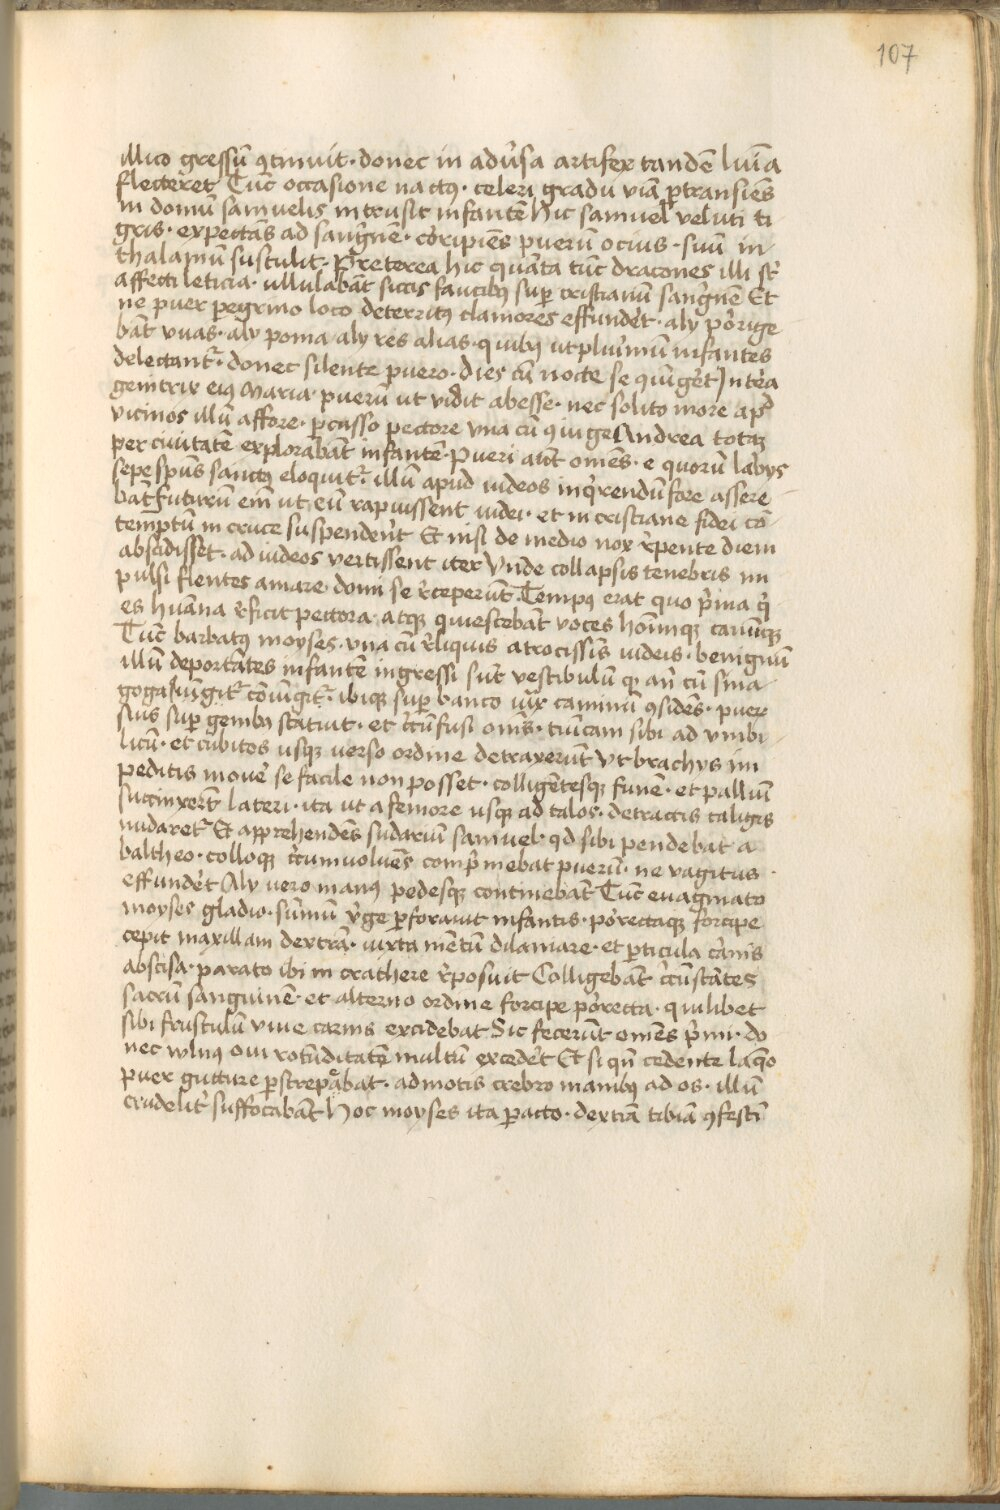 107
illico gressū ꝯtinuit · donec in adu̓sa artifex tandē lumīa
flecteret Tūc occasione nactꝰ · celeri gradu viā ꝑtransiēs
in domū samuelis intrusit infantē Hic samuel veluti ti
gris · expectās ad sanguinē · coripiēs puerū ocius · suū in
thalamū sustulit · Preterea hic quāta tūc dracones illi sūt
affecti leticia · ullulabāt siccis faucibꝰ suꝑ cristianū sanguinē Et
ne puer peregrino loco deterritꝰ clamores effunderet · aly porige
bāt vuas · aly poma aly res alias · quibꝰ ut plurimū infantes
delectantur · donec silente puero · dies cū nocte se quingeret Interea
genitrix eiꝰ Maria · puerū ut vidit abesse · nec solito more apd
vicinos illū affore · ꝑcusso pectore vna cū ꝯiuge Andrea totaꝫ
per ciuitatē explorabāt infantē · Pueri autē omēs · e quorū labys
sepe spūs sanctꝰ eloquitur · illū apud iudeos inquirendū fore assere
bāt futurū eīm ut eū rapuissent iudei · et in cristiane fidei cō-
temptū in cruce suspenderēt Et nisi de medio nox repente diem
abscidisset · ad iudeos vertissent iter Unde collapsis tenebris im
pulsi flentes amare · domi se receperūt · Tempꝰ erat quo prima qui
es humana reficit pectora · atqꝫ quiescebāt voces homīnūqꝫ canumqꝫ
Tūc barbatꝰ moyses · vna cū reliquis atrocissīs iudeis · benignū
illū deportātes infantē ingressi sūt vestibulū qꝫ an cū sina-
goga iungitur cōiūgitur · ibiqꝫ suꝑ banco iuxta caminū ꝯsidēs · puer
sius suꝑ genibꝰ statuit · et circūfusi omēs · tunicam sibi ad vmbi-
licū · et cubitos usqꝫ verso ordine detraxerūt Ut brachys im
peditis mouere se facile non posset · colligētesqꝫ funē · et palliū
succinxerūt lateri · ita ut a femore usqꝫ ad talos · detractis caligis
nudaretur Et apprehendēs sudariū samuel · qd sibi pendebat a
baltheo · colloqꝫ circumvoluēs comprimebat puerū · ne vagitus
effunderet Aly vero manꝰ pedesqꝫ continebāt Tūc euaginato
moyses gladio · sūmū virge ꝑforauit infantis · porrectaqꝫ forcipe
cepit maxillam dextrā · iuxta mētū dilaniare · et particula carnis
abscisa · parato ibi in crathere reposuit Colligebāt circūstātes
sacrū sanguinē · et alterno ordine forcipe porrecta · quilibet
sibi frustulū viue carnis excidebat Sic fecerūt omēs primi · do
nec vulnꝰ oui rotūditatē multū excederet Et si qn̄ cedente laqueo
puer gutture ꝑstrepabat · admotis crebro manibꝰ ad os · illū
crudeliter suffocabāt Hoc moyses ita ꝑacto · dextrā tibiā ꝯfestī